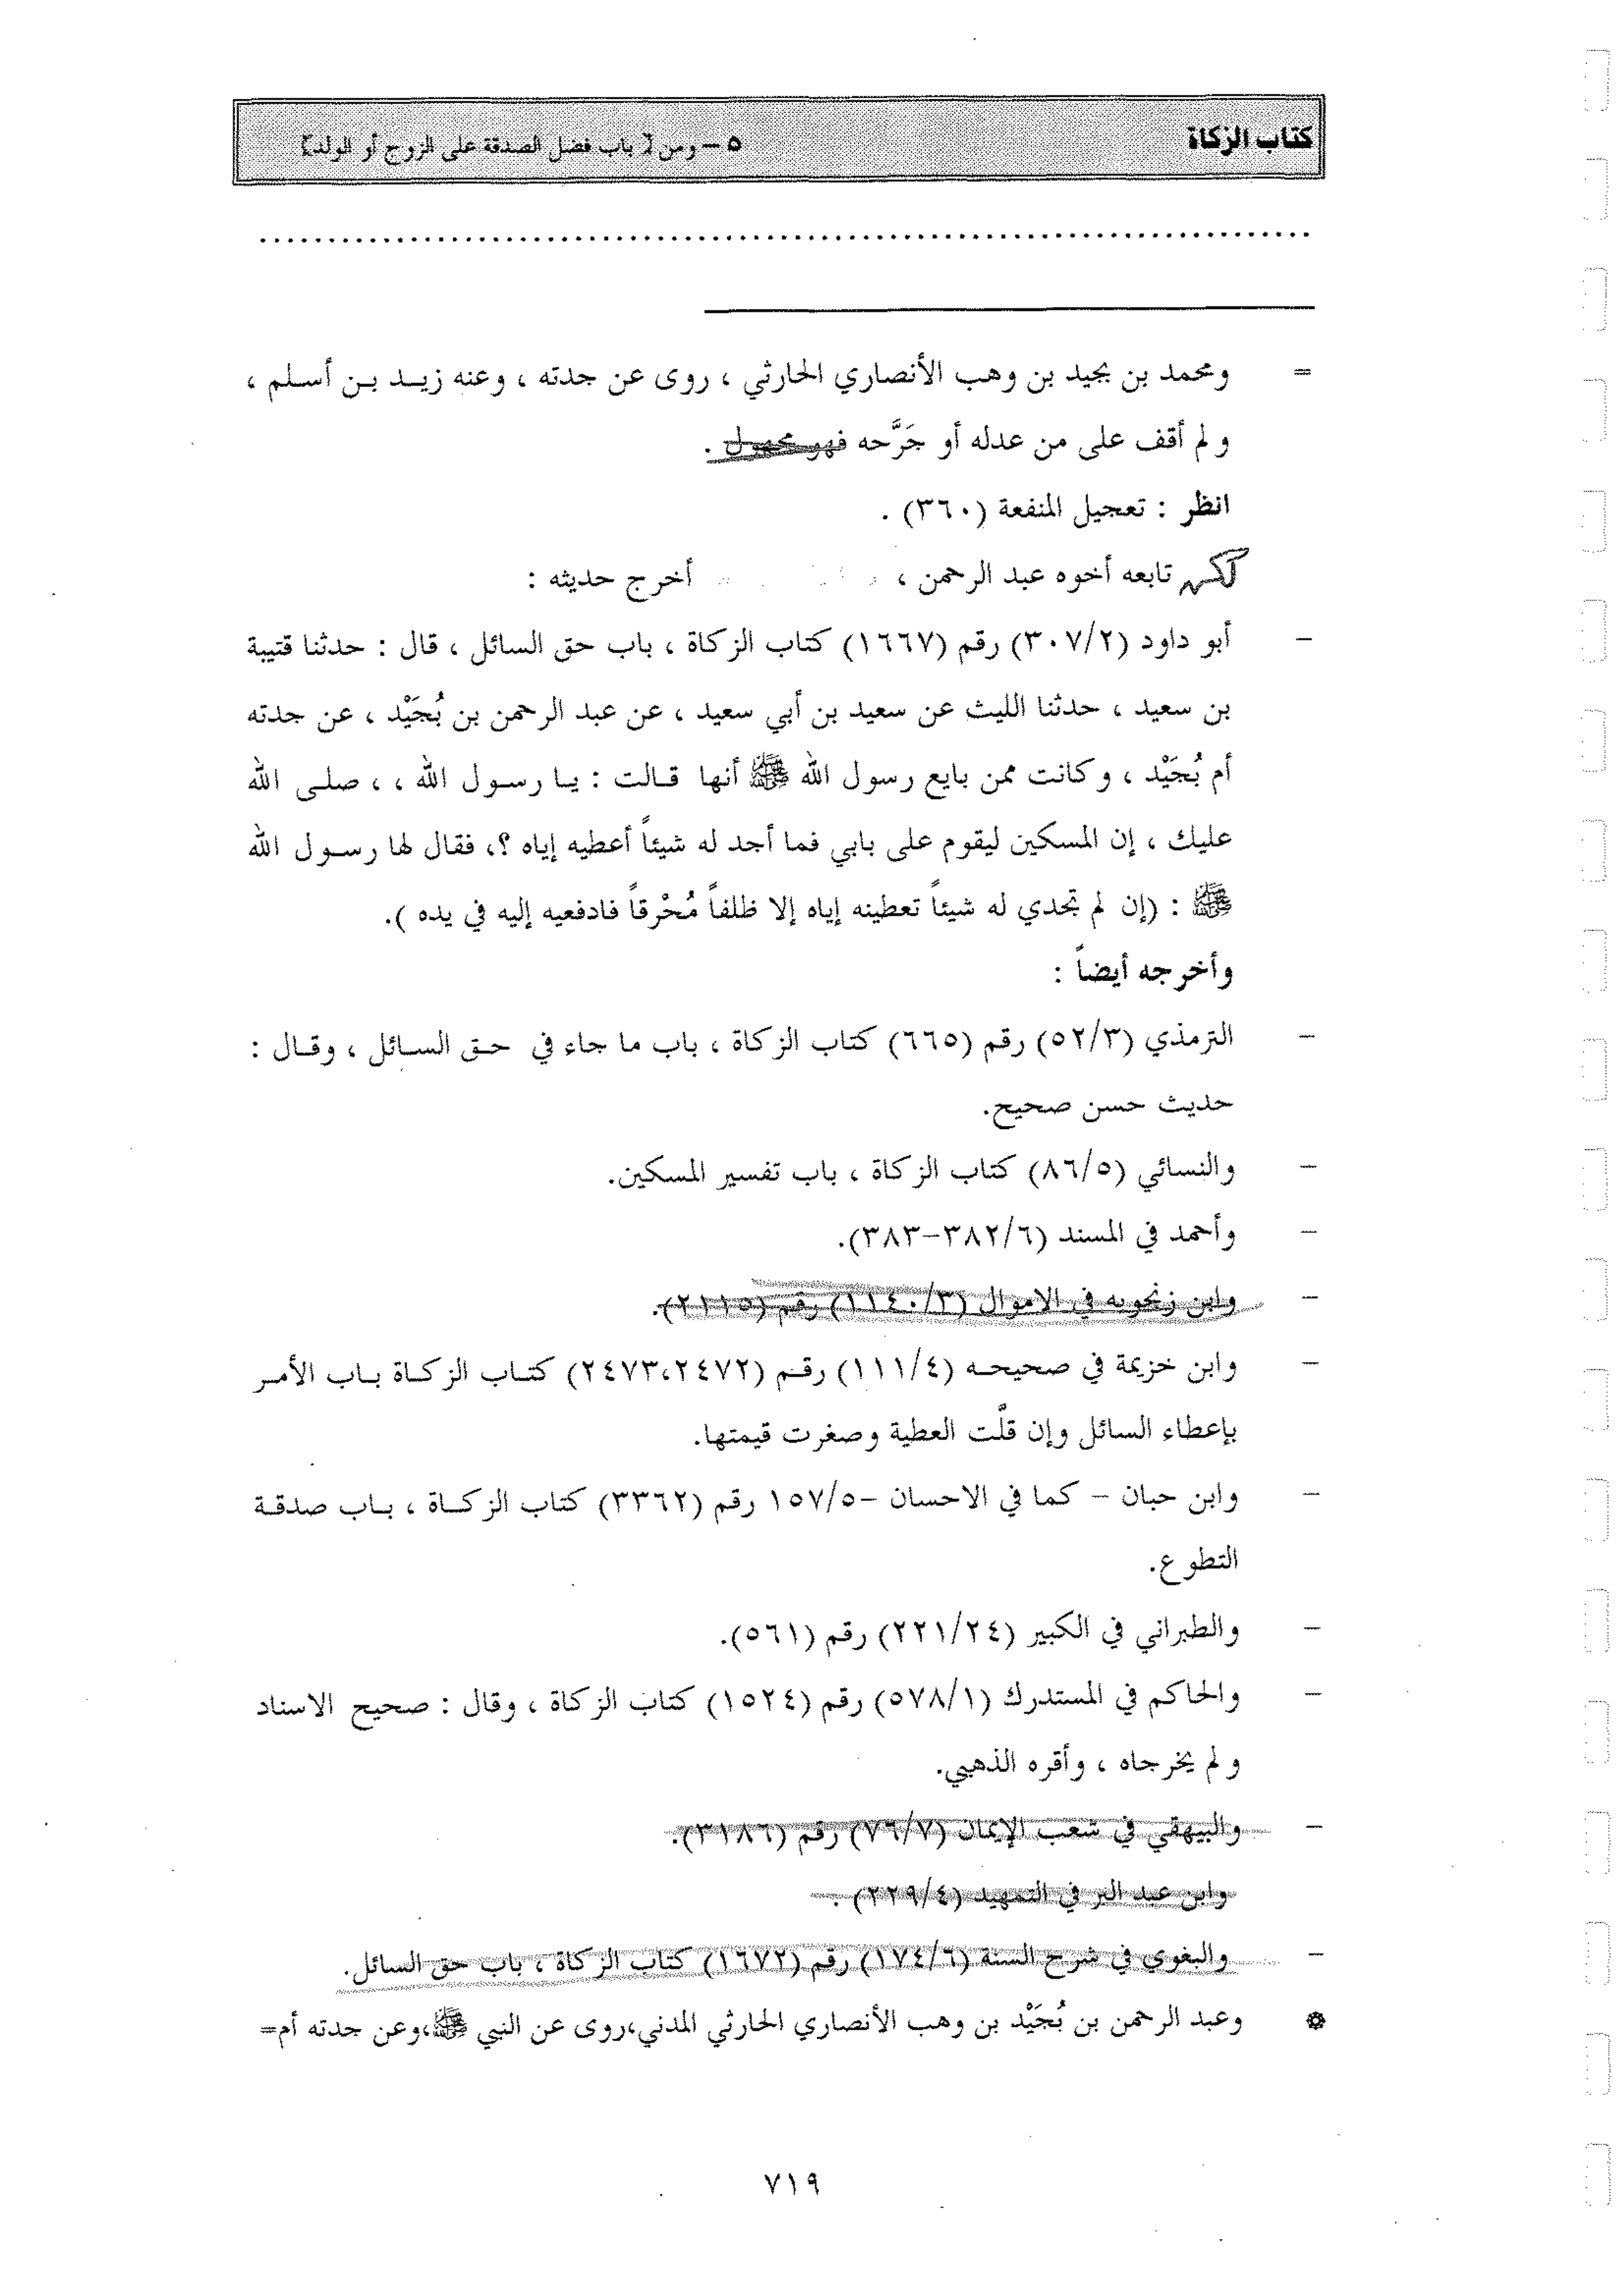 كتاب الزكاة
٥ – ومن [ باب فضل الصدقة على الزوج أو الولد]
= ومحمد بن بجيد بن وهب الأنصاري الحارثي ، روى عن جدته ، وعنه زيد بن أسلم ،
و لم أقف على من عدله أو جَرَّحه فهو مجهول .
انظر : تعجيل المنفعة (٣٦٠) .
لكن تابعه أخوه عبد الرحمن ، أخرج حديثه :
– أبو داود (٣٠٧/٢) رقم (١٦٦٧) كتاب الزكاة ، باب حق السائل ، قال : حدثنا قتيبة
بن سعيد ، حدثنا الليث عن سعيد بن أبي سعيد ، عن عبد الرحمن بن بُجَيْد ، عن جدته
أم بُجَيْد ، وكانت ممن بايع رسول الله ﷺ أنها قالت : يا رسول الله ، ، صلى الله
عليك ، إن المسكين ليقوم على بابي فما أجد له شيئاً أعطيه إياه ؟، فقال لها رسول الله
ﷺ : (إن لم تجدي له شيئاً تعطينه إياه إلا ظلفاً مُحْرقاً فادفعيه إليه في يده ).
وأخرجه أيضاً :
– الترمذي (٥٢/٣) رقم (٦٦٥) كتاب الزكاة ، باب ما جاء في حق السائل ، وقال :
حديث حسن صحيح.
– والنسائي (٨٦/٥) كتاب الزكاة ، باب تفسير المسكين.
– وأحمد في المسند (٣٨٢/٦–٣٨٣).
– وابن زنجويه في الاموال (١١٤٠/٣) رقم (٢١١٥).
– وابن خزيمة في صحيحه (١١١/٤) رقم (٢٤٧٣،٢٤٧٢) كتاب الزكاة باب الأمر
بإعطاء السائل وإن قلَّت العطية وصغرت قيمتها.
– وابن حبان – كما في الاحسان –١٥٧/٥ رقم (٣٣٦٢) كتاب الزكاة ، باب صدقة
التطوع.
– والطبراني في الكبير (٢٢١/٢٤) رقم (٥٦١).
– والحاكم في المستدرك (٥٧٨/١) رقم (١٥٢٤) كتاب الزكاة ، وقال : صحيح الاسناد
و لم يخرجاه ، وأقره الذهبي.
– والبيهقي في شعب الإيمان (٧٦/٧) رقم (٣١٨٦).
وابن عبد البر في التمهيد (٢٢٩/٤) .
– والبغوي في شرح السنة (١٧٤/٦) رقم (١٦٧٢) كتاب الزكاة ، باب حق السائل.
* وعبد الرحمن بن بُجَيْد بن وهب الأنصاري الحارثي المدني،روى عن النبي ﷺ،وعن جدته أم=
٧١٩